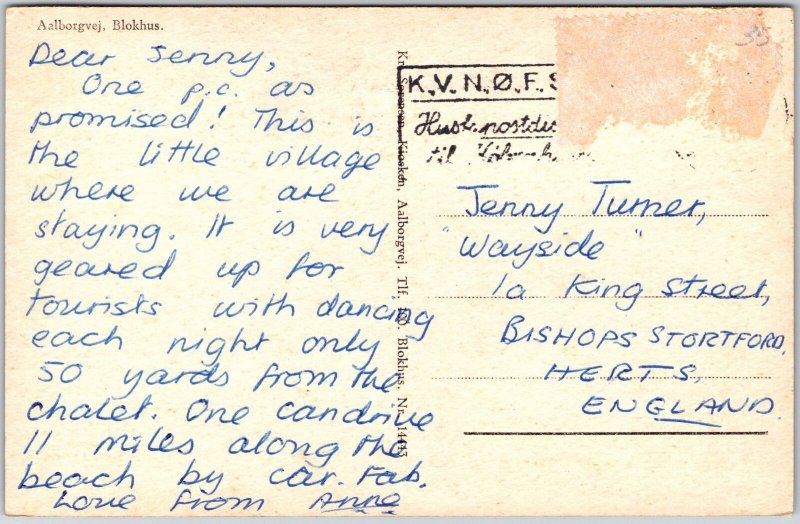 Aalborgvej, Blokhus.
Dear Jenny,
One p.c. as
promised! This is
the little village
where we are
staying. It is very
geared up for
tourists with dancing
each night only
50 yards from the
chalet. One can drive
11 miles along the
beach by car. Fab.
Love from Anne
Sørensen, Kiosken, Aalborgvej. Tlf. Blokhus. Nr. 14443
K.V.N.Ø.F.S
Husk postdis
til
35
Jenny Turner,
"Wayside"
1a King Street,
BISHOPS STORTFORD,
HERTS,
ENGLAND.